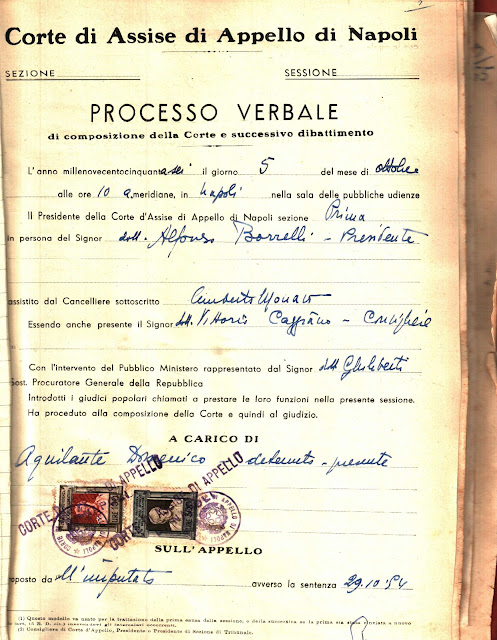 Corte di Assise di Appello di Napoli
SEZIONE SESSIONE
PROCESSO VERBALE
di composizione della Corte e successivo dibattimento
L'anno millenovecentocinquantasei il giorno 5 del mese di ottobre
alle ore 10 a. meridiane, in Napoli nella sala delle pubbliche udienze
Il Presidente della Corte d'Assise di Appello di Napoli sezione Prima
in persona del Signor dott. Alfonso Borrelli - Presidente
assistito dal Cancelliere sottoscritto Umberto Monaco
Essendo anche presente il Signor dott. Vittorio - Consigliere
Con l'intervento del Pubblico Ministero rappresentato dal Signor dott
Sost. Procuratore Generale della Repubblica
Introdotti i giudici popolari chiamati a prestare le loro funzioni nella presente sessione.
Ha proceduto alla composizione della Corte e quindi al giudizio.
A CARICO DI
Aquilante Domenico detenuto - presente
CORTE DI APPELLO
DI APPELLO
SULL'APPELLO
oposto da dll'imputato avverso la sentenza 29.10.54
(1) Questo modello va usato per la trattazione dalla prima senza dalla sessione, o della successiva se la prima sia stata rinviata a nuovo
(2) Consigliere di Corte d'Appello, Presidente o Presidente di Sezione di Tribunale.